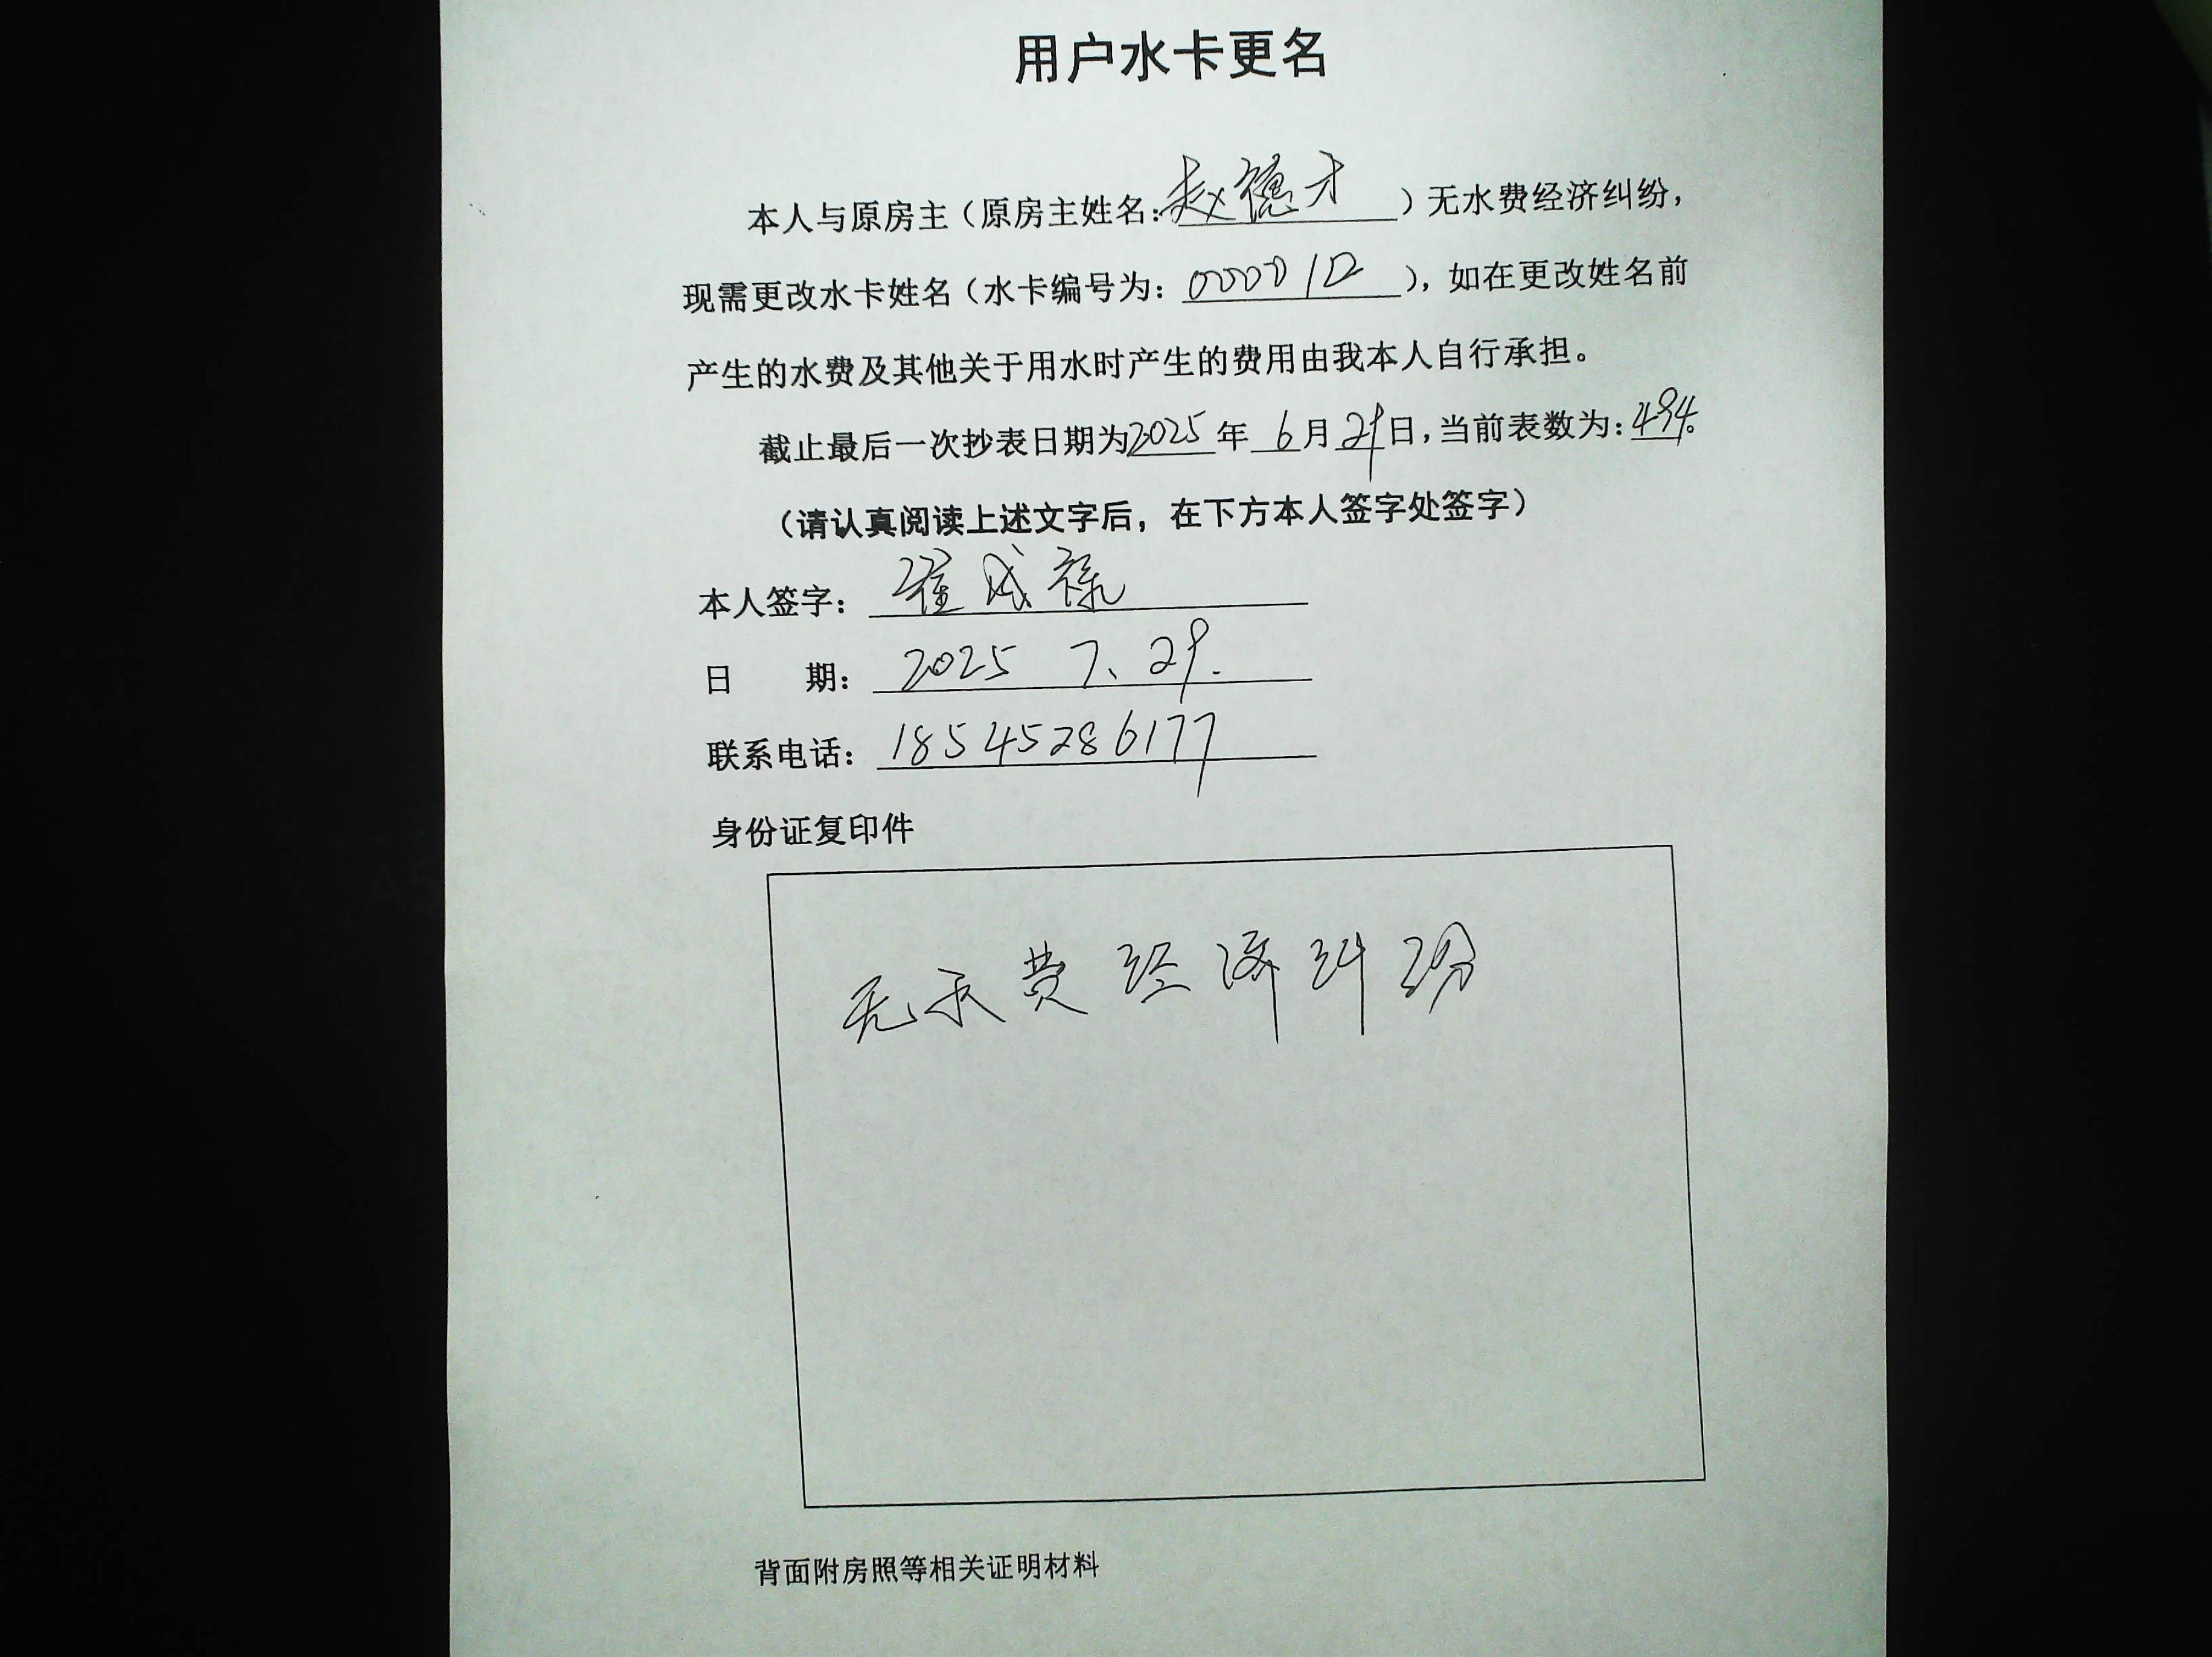 用户水卡更名
本人与原房主（原房主姓名：赵德才）无水费经济纠纷，
现需更改水卡姓名（水卡编号为：0000112），如在更改姓名前
产生的水费及其他关于用水时产生的费用由我本人自行承担。
截止最后一次抄表日期为2025年6月29日，当前表数为：494。
（请认真阅读上述文字后，在下方本人签字处签字）
本人签字：成禄
日 期：2025 7、29.
联系电话：18545286177
身份证复印件
无水费经济纠纷
背面附房照等相关证明材料